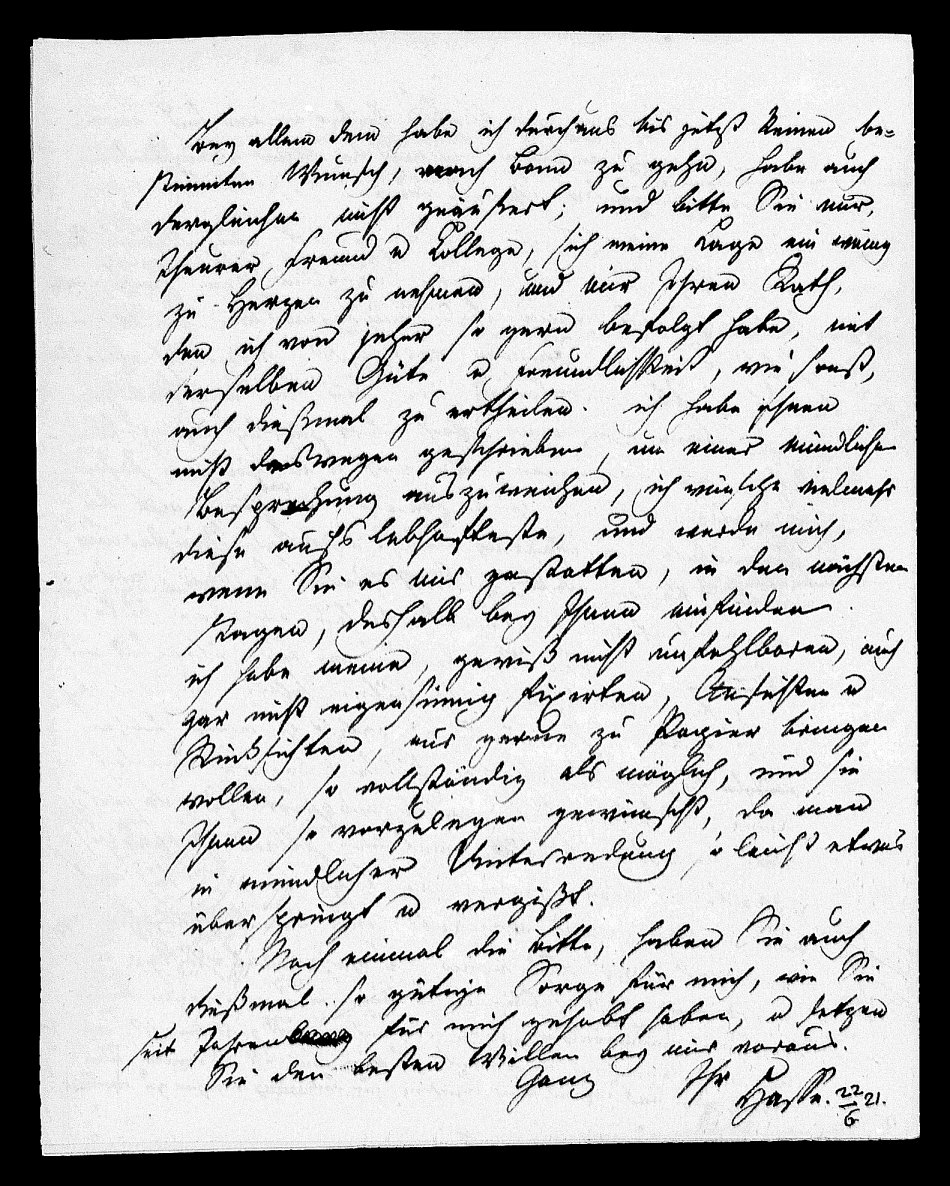 Bey allem dem habe ich durchaus bis jetzt keinen be-
stimmten Wunsch, nach Bonn zu gehn, habe auch
dergleichen nicht geäußert; und bitte Sie nur,
Theurer Freund u College, sich meine Lage ein wenig
zu Herzen zu nehmen, und mir Ihren Rath,
den ich von jeher so gern befolgt habe, mit
derselben Güte u Freundlichkeit, wie sonst,
auch dießmal zu ertheilen. ich habe Ihnen
nicht deswegen geschrieben, um einer mündlichen
Besprechung auszuweichen, ich wünsche vielmehr
diese aufs lebhafteste, und werde mich,
wenn Sie es mir gestatten, in den nächsten
Tagen, deshalb bey Ihnen einfinden.
ich habe meine, gewiß nicht unfehlbaren, auch
gar nicht eigensinnig fixirten, Ansichten u
Rücksichten, nur gerne zu Papier bringen
wollen, so vollständig als möglich, und sie
Ihnen so vorzulegen gewünscht, da man
in mündlicher Unterredung so leicht etwas
überspringt u vergißt.
Noch einmal die Bitte, haben Sie auch
dießmal so gütige Sorge für mich, wie Sie
seit Jahren für mich gehabt haben, u setzen
Sie den besten Willen bey mir voraus.
Ganz Ihr
Hasse. 22/6 21.